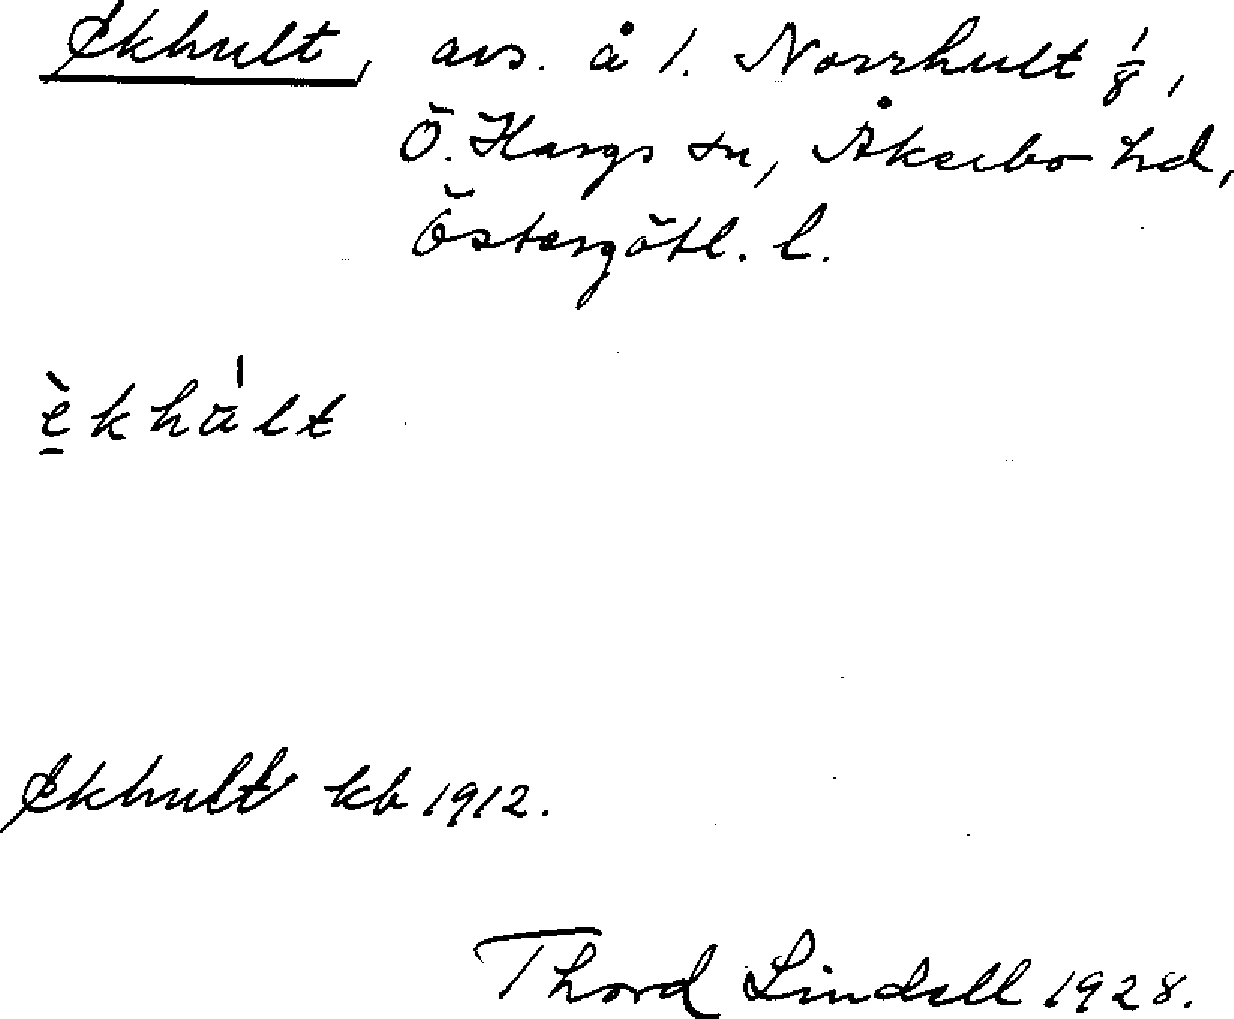 Ekhult, avs. å 1. Norrhult 1/8,
Ö. Hargs sn, Åkerbo hd,
Östergötl. l.
è̱khu̍lt
Ekhult kb 1912.
Thord Lindell 1928.